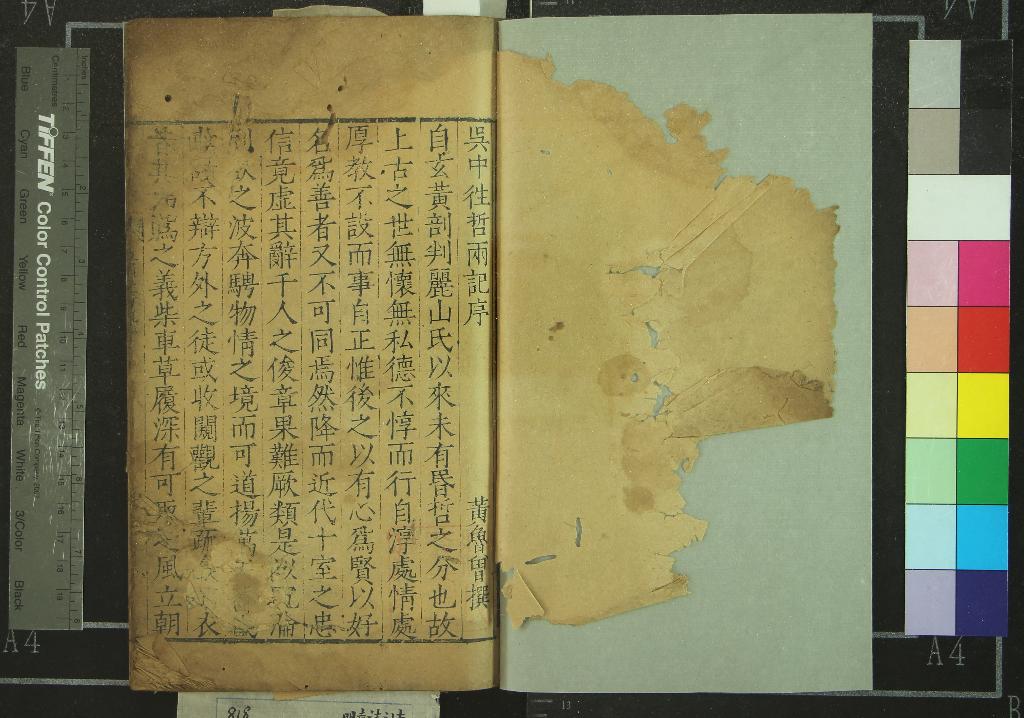 吳中徃哲兩記序
黃魯曾撰
自玄黃剖判麗山氏以來未有昬哲之分也故
上古之世無懷無私德不惇而行自淳處情處
厚教不設而事自正惟後之以有心爲賢以好
名爲善者又不可同焉然降而近代十室之忠
信竟虛其辭千人之俊章果難厥類是以沉淪
之波奔騁物情之境而可道揚
不辯方外之徒或收闚觀之輩疏 衣
爲之義柴車草履深有可 風立朝
TIFFEN Color Control Patches
Inches
Centimetres
Blue Cyan Green Yellow Red Magenta White 3/Color Black
A4
A4
A4
A4
B
13
818